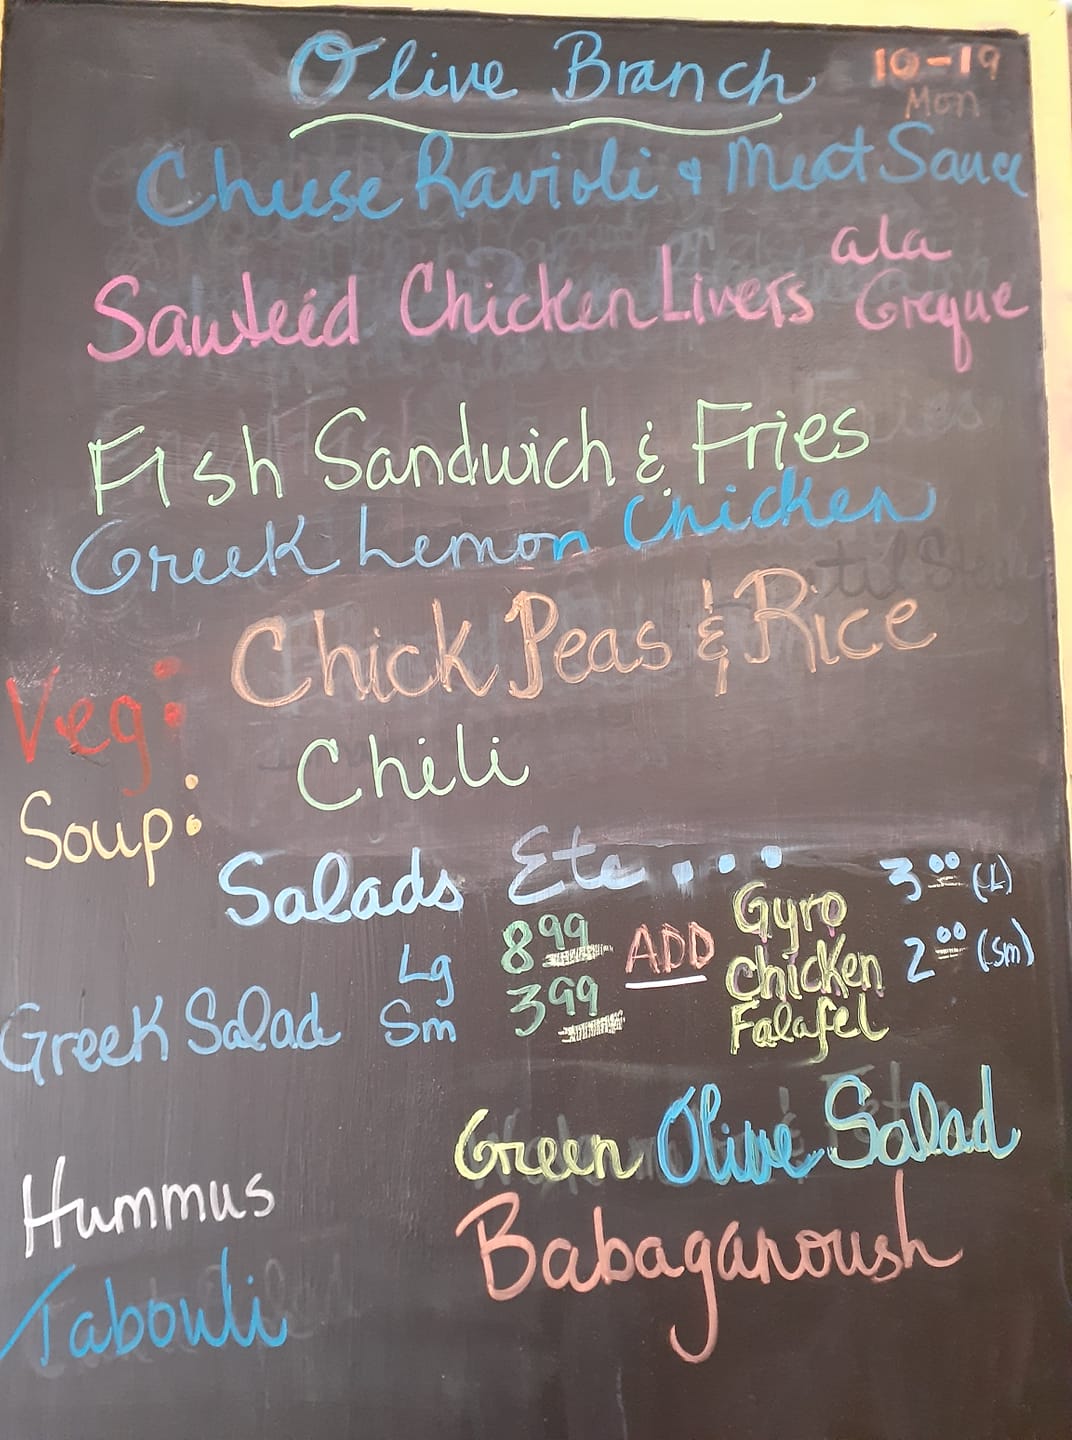 Olive Branch 10-19
Mon
Cheese Ravioli & Meat Sauce
Sauteéd Chicken Livers ala Greque
Fish Sandwich & Fries
Greek Lemon Chicken
Veg: Chick Peas & Rice
Soup: Chili
Salads Etc....
Greek Salad Lg 8.99
Sm 3.99
ADD Gyro Chicken Falafel
3.00 (L)
2.00 (Sm)
Green Olive Salad
Hummus
Babaganoush
Tabouli